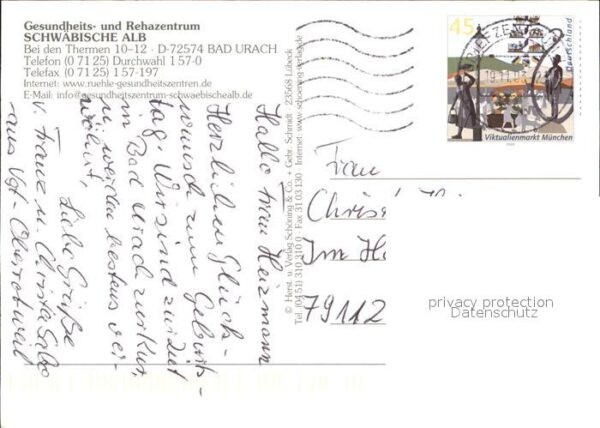 Gesundheits- und Rehazentrum
SCHWÄBISCHE ALB
Bei den Thermen 10–12 · D-72574 BAD URACH
Telefon (0 71 25) Durchwahl 1 57-0
Telefax (0 71 25) 1 57-197
Internet: www.ruehle-gesundheitszentren.de
E-Mail: info@gesundheitszentrum-schwaebischealb.de
Hallo Frau Heizmann
Herzlichen Glück-
wunsch zum Geburts-
tag. Wir sind zur Zeit
in Bad Urach zur Kur,
werden bestens
wöhnt,
Liebe Grüße
v. Franz u. Christa
aus Vgt. Oberrotweil
© Herst. u. Verlag Schöning & Co. + Gebr. Schmidt · 23568 Lübeck
Tel. (04 51) 310 310 0 · Fax 31 03 130 · Internet: www.schoening-verlag.de
45
Deutschland
BRIEFZENTRUM
Viktualienmarkt München
Frau
Im
79112
privacy protection
Datenschutz